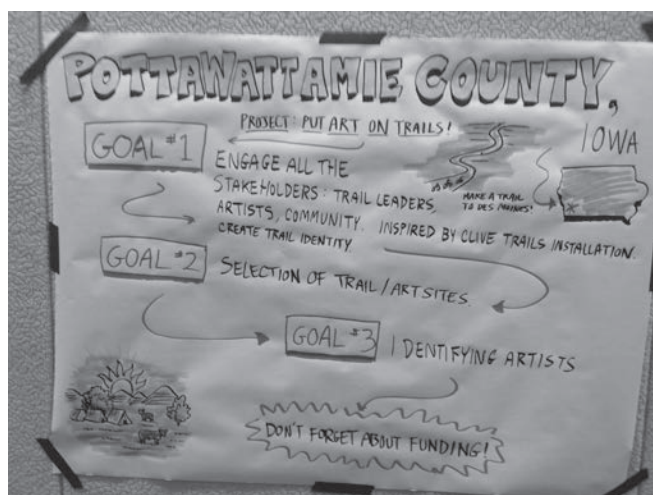 POTTAWATTAMIE COUNTY,
IOWA
PROJECT: PUT ART ON TRAILS!
GOAL #1
ENGAGE ALL THE
STAKEHOLDERS: TRAIL LEADERS,
ARTISTS, COMMUNITY. INSPIRED BY CLIVE TRAILS INSTALLATION.
CREATE TRAIL IDENTITY.
MAKE A TRAIL
TO DES MOINES!
GOAL #2
SELECTION OF TRAIL/ART SITES.
GOAL #3
IDENTIFYING ARTISTS
DON'T FORGET ABOUT FUNDING!